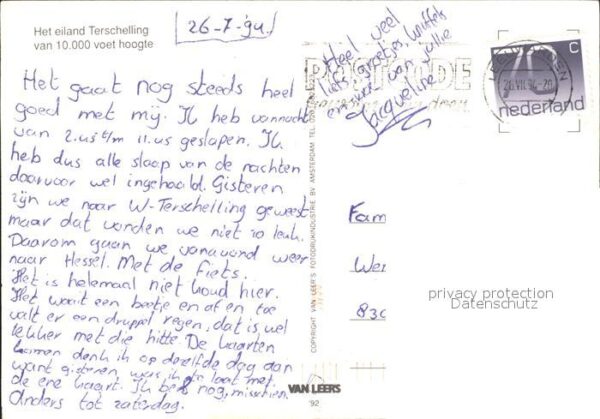 Het eiland Terschelling
van 10.000 voet hoogte
26-7-'94.
Het gaat nog steeds heel
goed met mij. Ik heb vannacht
van 2.u5 t/m 11.u5 geslapen. Ik
heb dus alle slaap van de nachten
daarvoor wel ingehaald. Gisteren
zijn we naar W-Terschelling geweest
maar dat vonden we niet zo leuk.
Daarom gaan we vanavond weer
naar Hessel. Met de fiets.
Het is helemaal niet koud hier.
Het waait een beetje en af en toe
valt er een druppel regen, dat is wel
lekker met die hitte. De kaarten
komen denk ik op dezelfde dag aan
want gisteren was ik te laat met
de ene kaart. Ik bel nog, misschien.
Anders tot zaterdag.
Heel veel
liefs, groetjes, knuffels
van jullie
Jacqueline
COPYRIGHT VAN LEER'S FOTODRUKINDUSTRIE BV AMSTERDAM
VAN LEERS
'92
70 C
26.VII.94-20
nederland
Fam
Wer
830
privacy protection
Datenschutz